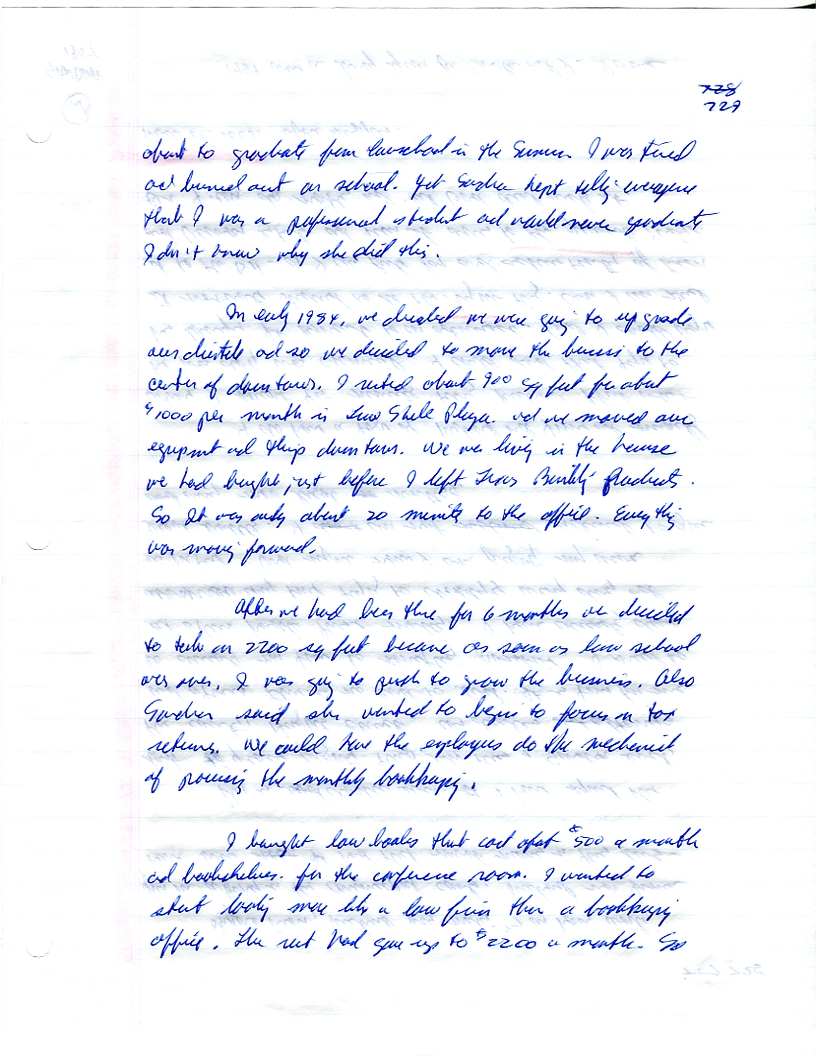 728
729
about to graduate from lawschool in the Summer. I was tired
ad burned out on school. Yet Sandra kept telling everyone
that I was a professional student ad would never graduate
I don't know why she did this.
In early 1984, we decided we were going to upgrade
our clientele ad so we decided to move the business to the
center of downtown. I rented about 900 sq feet for about
$1000 per month in Two Shell Plaza. ad we moved our
equipment ad things downtown. We were living in the house
we had bought just before I left Texas Building Products.
So It was only about 20 minutes to the office. Everything
was moving forward.
After we had been there for 6 months we decided
to take on 2200 sq feet because as soon as law school
was over, I was going to push to grow the business. Also
Sandra said she wanted to begin to focus on tax
returns. We could have the employees do the mechanics
of processing the monthly bookkeeping.
I bought law books that cost about $500 a month
ad bookshelves. for the conference room. I wanted to
start looking more like a law firm than a bookkeeping
office. The rent had gone up to $2200 a month. So